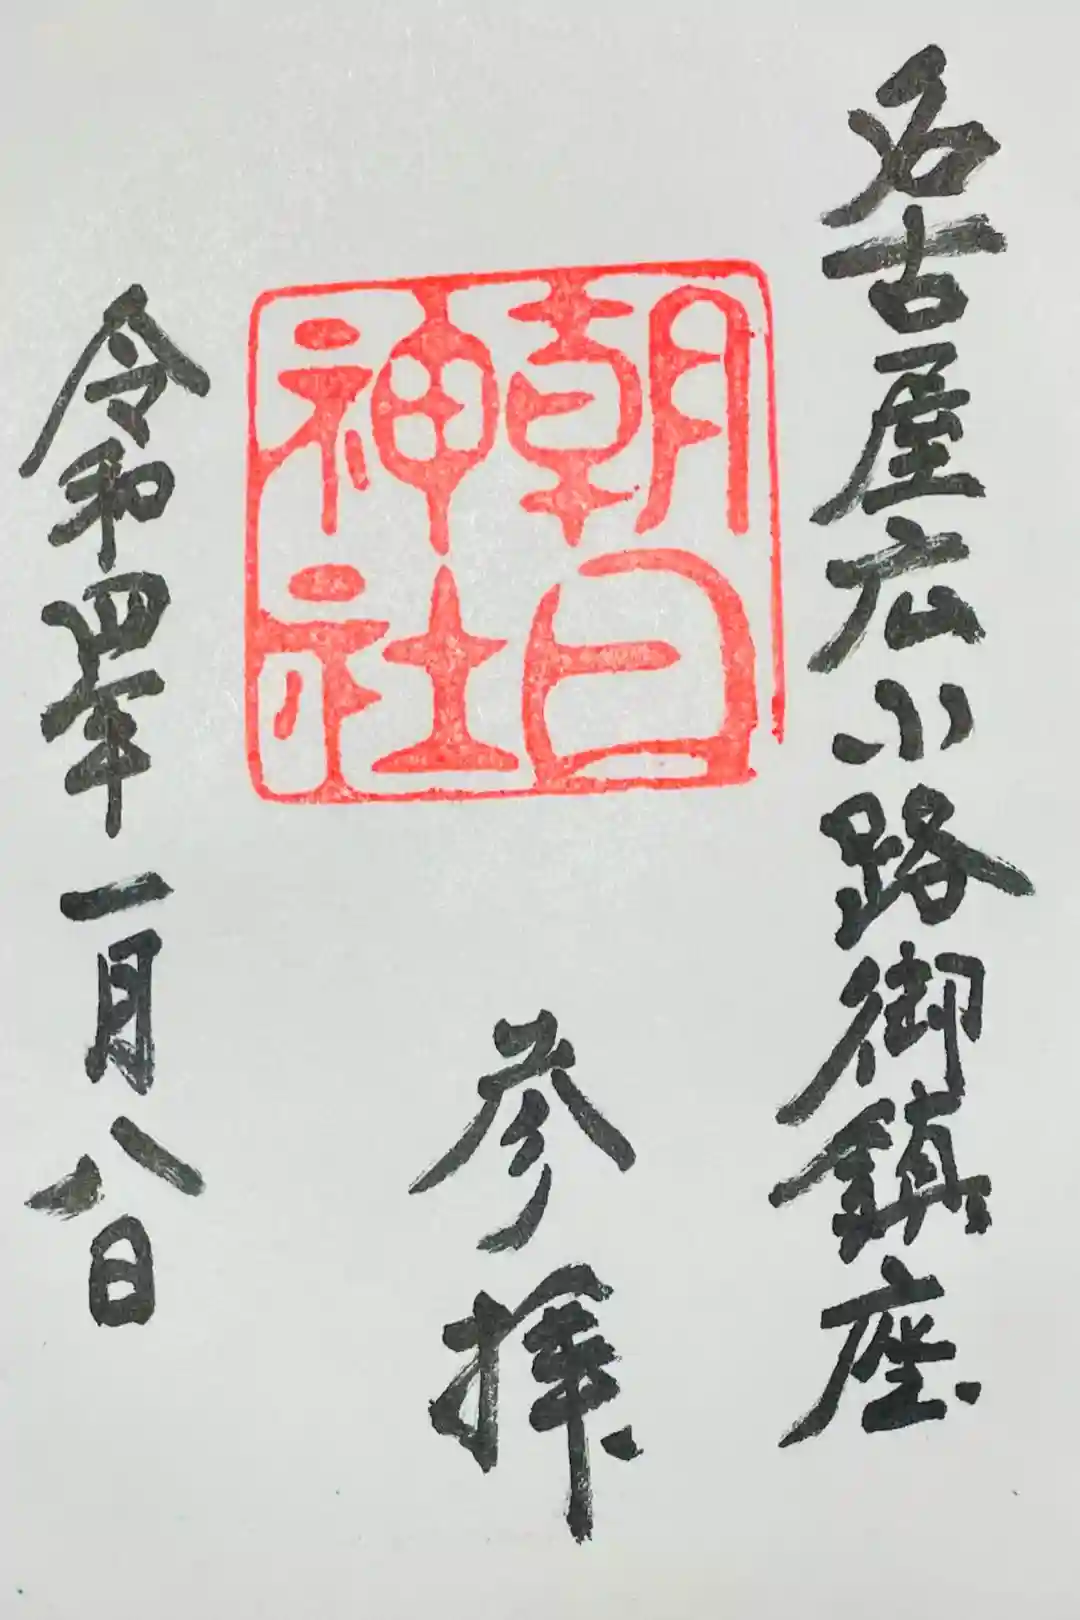 名古屋広小路御鎮座
朝日
神社
参拝
令和四年一月八日